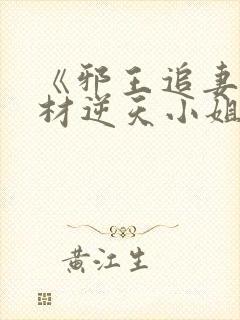 《邪王追妻
材逆天小姐
黄江生